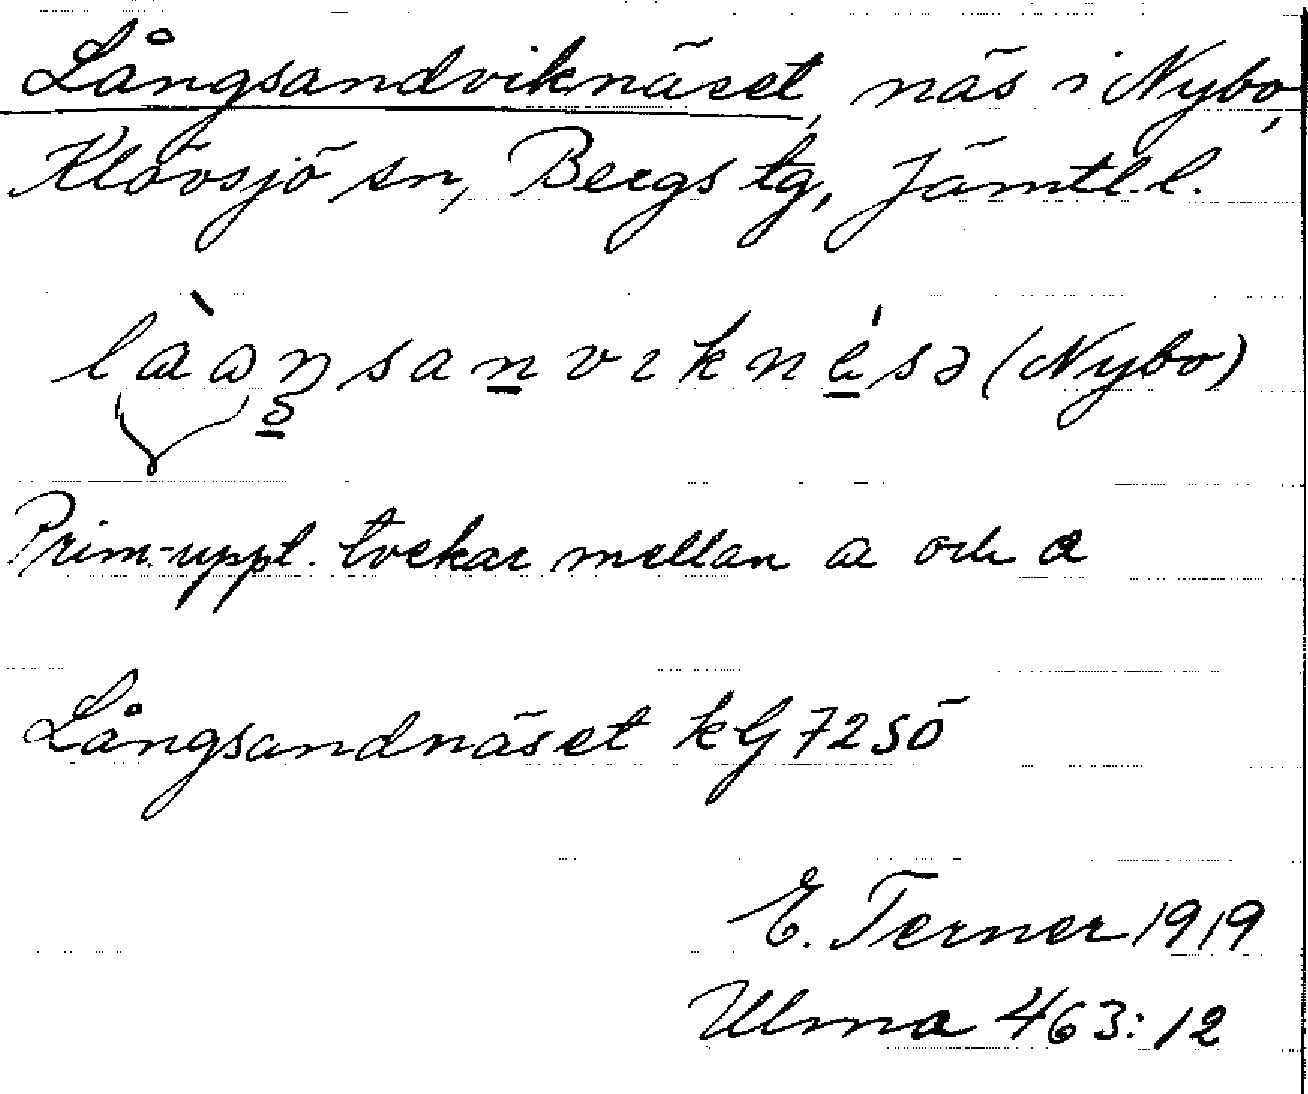 Långsandviknäset, näs i Nybo,
Klövsjö sn, Bergs tg, Jämtl. l.
(Nybo)
Prim.-uppt. tvekar mellan a och a
Långsandnäset kG 72 SÖ
E. Terner 1919
Ulma 463:12